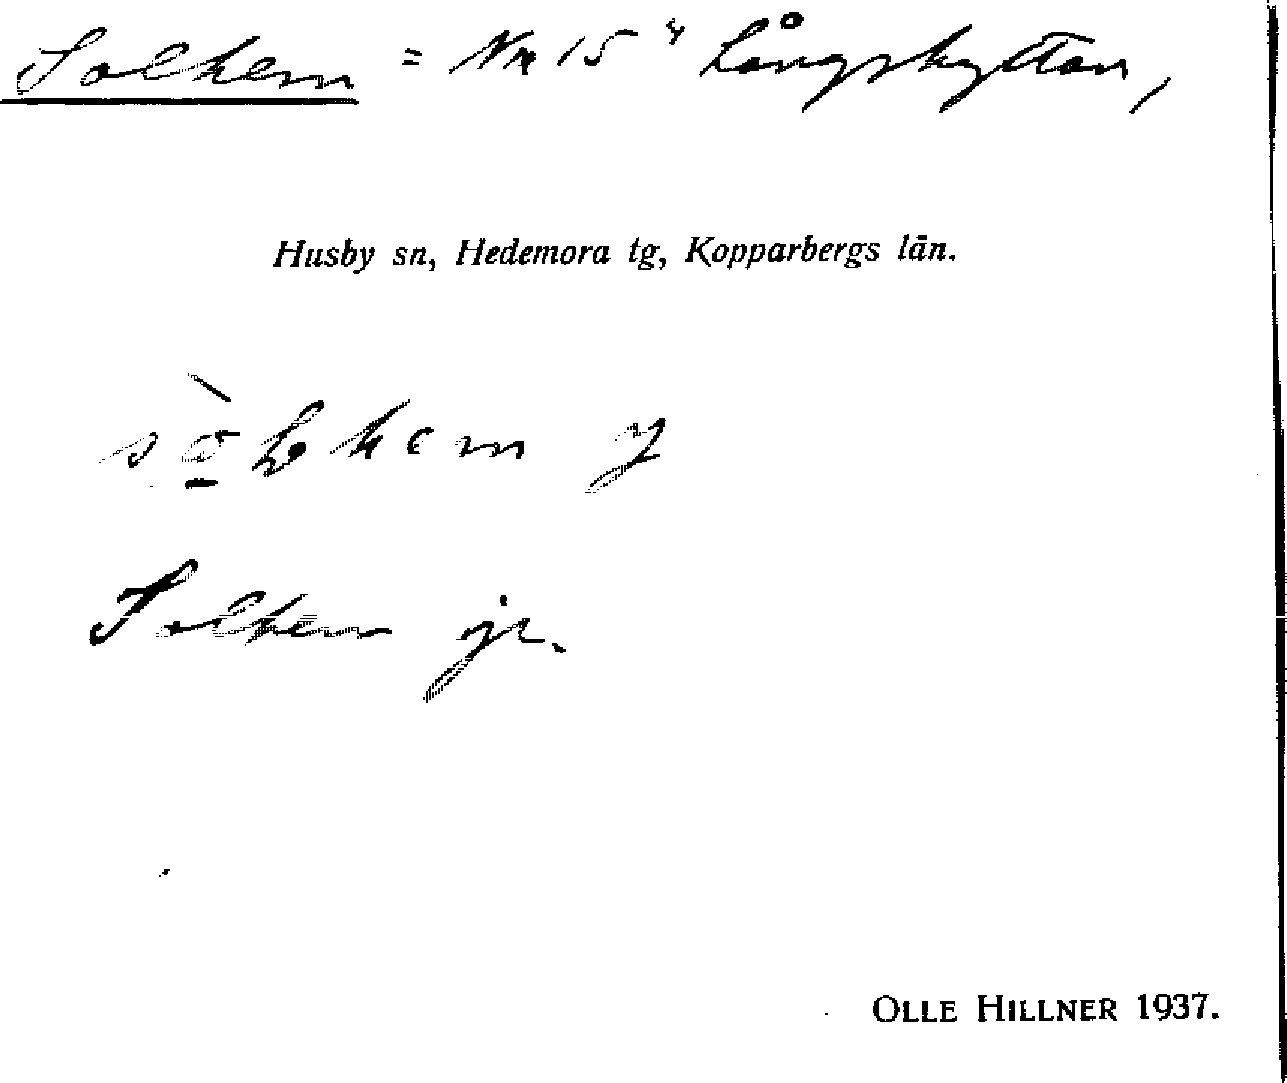 Solhem = Nr 15 i Långshyttan,
Husby sn, Hedemora tg, Kopparbergs län.
Solhem jr.
OLLE HILLNER 1937.